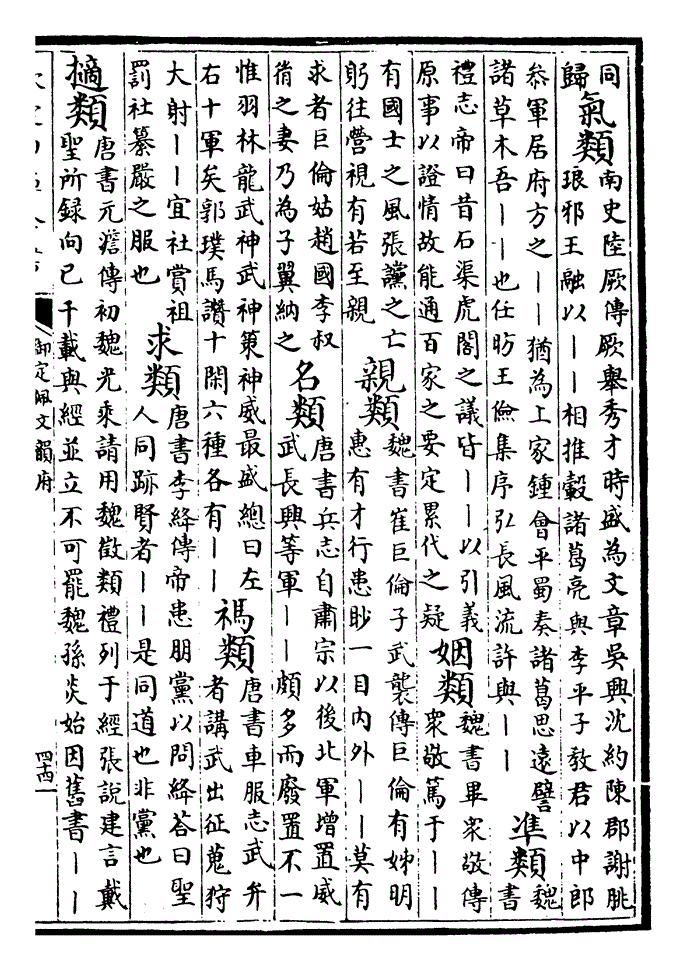 同
歸
氣類
南史陸厥傳厥舉秀才時盛為文章吳興沈約陳郡謝朓
琅邪王融以丨丨相推轂諸葛亮與李平子教君以中郎
參軍居府方之丨丨猶為上家鍾會平蜀奏諸葛思遠譬
諸草木吾丨丨也任昉王儉集序弘長風流許與丨丨
凖類
魏
書
禮志帝曰昔石渠虎閣之議皆丨丨以引義
原事以證情故能通百家之要定累代之疑
姻類
魏書畢衆敬傳
衆敬篤于丨丨
有國士之風張讜之亡
躬往營視有若至親
親類
魏書崔巨倫子武襲傳巨倫有姊明
惠有才行患眇一目内外丨丨莫有
求者巨倫姑趙國李叔
胤之妻乃為子翼納之
名類
唐書兵志自肅宗以後北軍增置威
武長興等軍丨丨頗多而廢置不一
惟羽林龍武神武神策神威最盛總曰左
右十軍矣郭璞馬讚十閑六種各有丨丨
禡類
唐書車服志武弁
者講武出征蒐狩
大射丨丨宜社賞祖
罰社纂嚴之服也
求類
唐書李絳傳帝患朋黨以問絳答曰聖
人同跡賢者丨丨是同道也非黨也
擿類
唐書元澹傳初魏光乘請用魏徵類禮列于經張說建言戴
聖所録向已千載與經並立不可罷魏孫炎始因舊書丨丨
御定佩文韻府